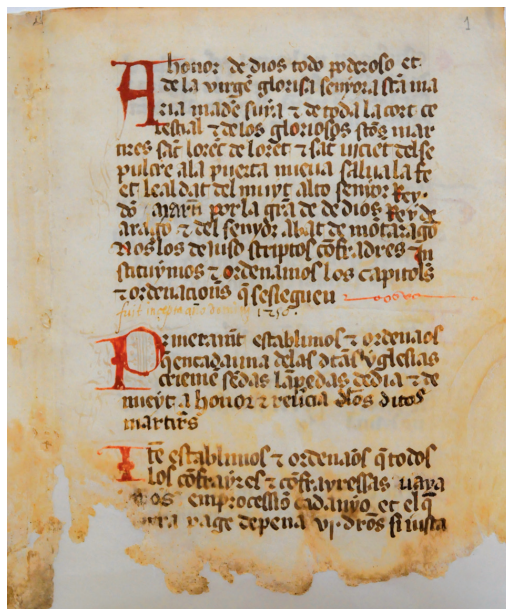 1
A honor de dios todo poderoso et
de la virgē gloriosa senyora scā ma
ria madre suya ⁊ de toda la cort ce
lestial ⁊ de los gloriosos scōs mar
tires sāt lorēc de lorēt ⁊ sāt vicēt del se
pulcre a la puerta nueva salva la fe
et lealdat del muyt alto senyor Rey
dō Martī por la grā de dios Rey de
aragō ⁊ del senyor abat de mōtaragō
Nos los de iuso scriptos cōfradres in
stituymos ⁊ ordenamos los capitols
⁊ ordenacions q̄ se siegueu
fuit anno domini
Primeramēt establimos ⁊ ordenaos
q̄ en cada una de las dītas yglesias
cremē sedas lāpedas de dia ⁊ de
nueyt a honor ⁊ de los ditos
martirs
Itē establimos ⁊ ordenaōs q̄ todos
los cōfrayres ⁊ cōfrayressas vaya
en processiō cad anyo et el q̄
page de pena vj drōs si iusta